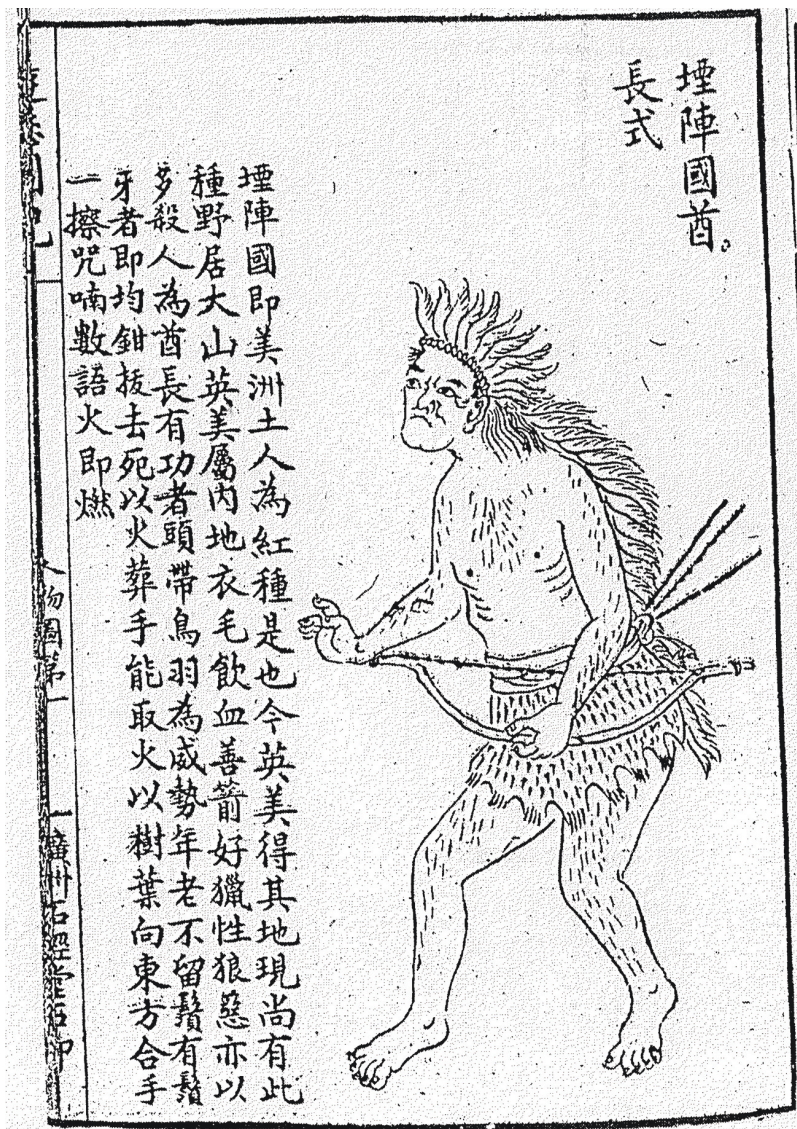 堙陣國酋。
長式
堙陣國即美洲土人為紅種是也今英美得其地現尚有此
種野居大山英美屬內地衣毛飲血善箭好獵性狼惡亦以
多殺人為酋長有功者頭帶鳥羽為威勢年老不留鬚有鬚
牙者即均鉗拔去死以火葬手能取火以樹葉向東方合手
一擦咒喃數語火即燃
人物圖第一
廣州石經堂石印